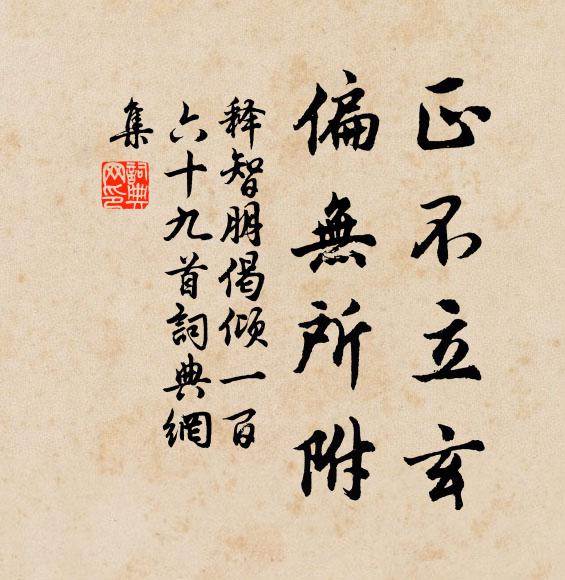 正不立玄
偏無所附
释智朋偈倾一百
六十九首詞典網
集
詞典
网印